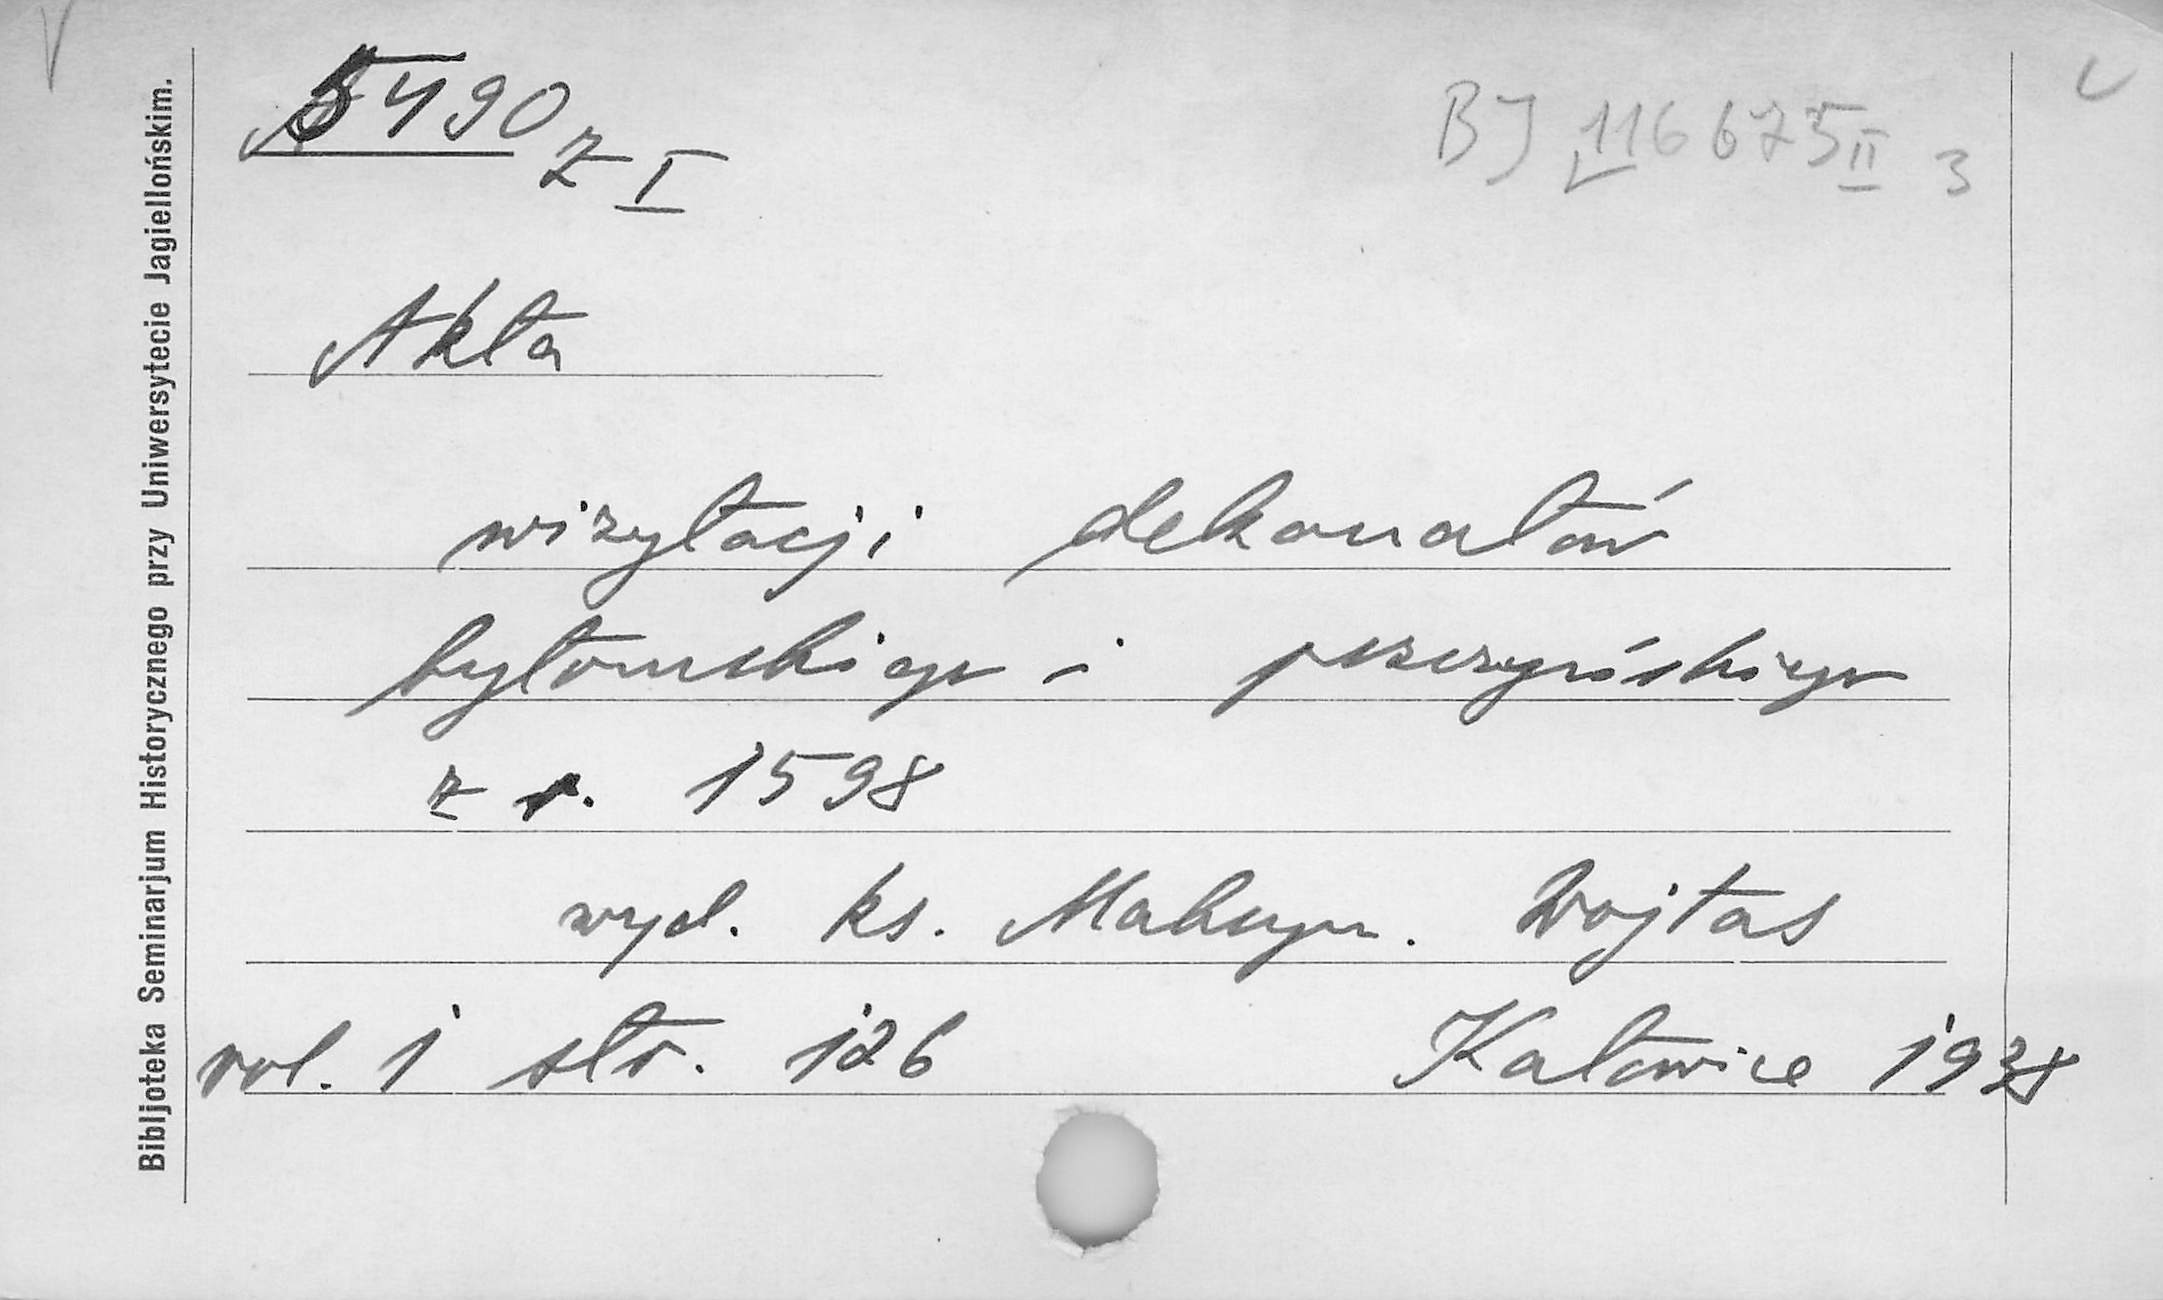 5490 z I
BJ 116675 II 3
Akta
wizytacji dekanatów
bytomskiego i pszczyńskiego
z r. 1598
wyd. ks. Maksym. Wojtas
vol. 1 str. 126 Katowice 1938
Bibljoteka Seminarjum Historycznego przy Uniwersytecie Jagiellońskim.